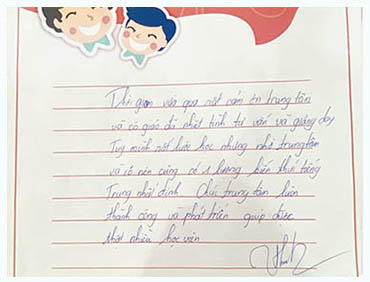 Thời gian vừa qua rất cảm ơn trung tâm
và cô giáo đã nhiệt tình tư vấn và giảng dạy
Tuy mình rất lười học nhưng nhờ trung tâm
và cô nên cũng có 1 lượng kiến thức tiếng
Trung nhất định Chúc trung tâm luôn
thành công và phát triển giúp được
thật nhiều học viên